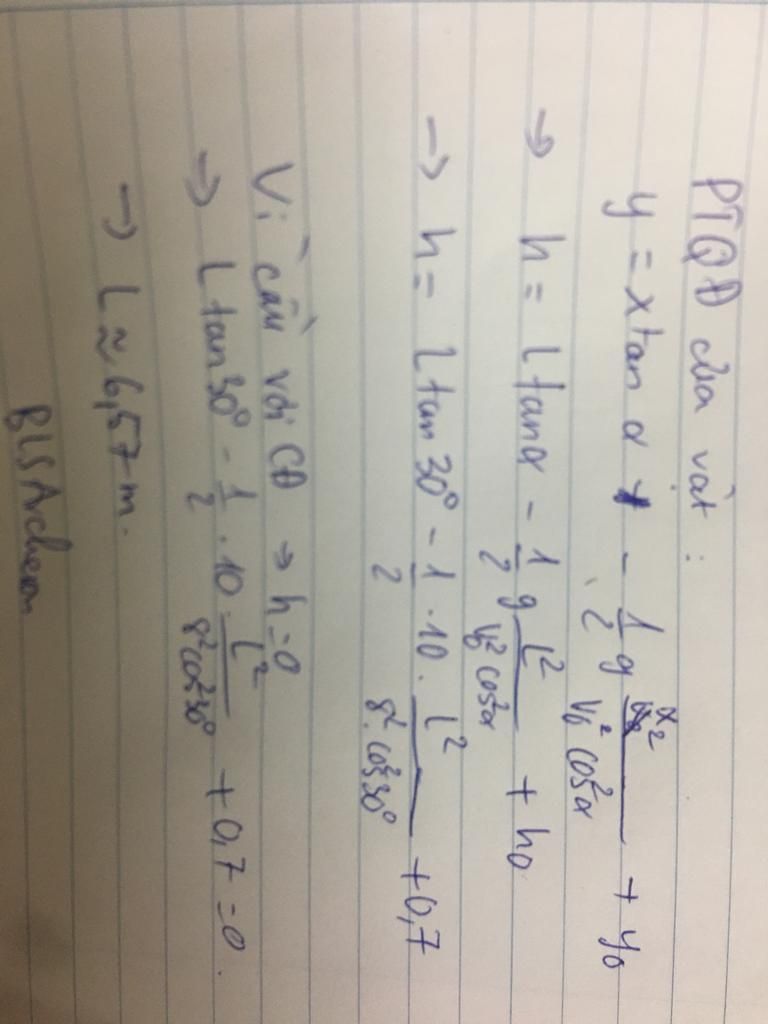 PTQĐ của vật :
y = x tan α - 1/2 g x²/(v₀² cos²α) + y₀
→ h = L tan α - 1/2 g L²/(v₀² cos²α) + h₀
→ h = L tan 30° - 1/2 . 10 . L²/(8² . cos²30°) + 0,7
Vì cần với CĐ → h = 0
→ L tan 30° - 1/2 . 10 . L²/(8² cos²30°) + 0,7 = 0 .
→ L ≈ 6,57 m .
BLSArcheron